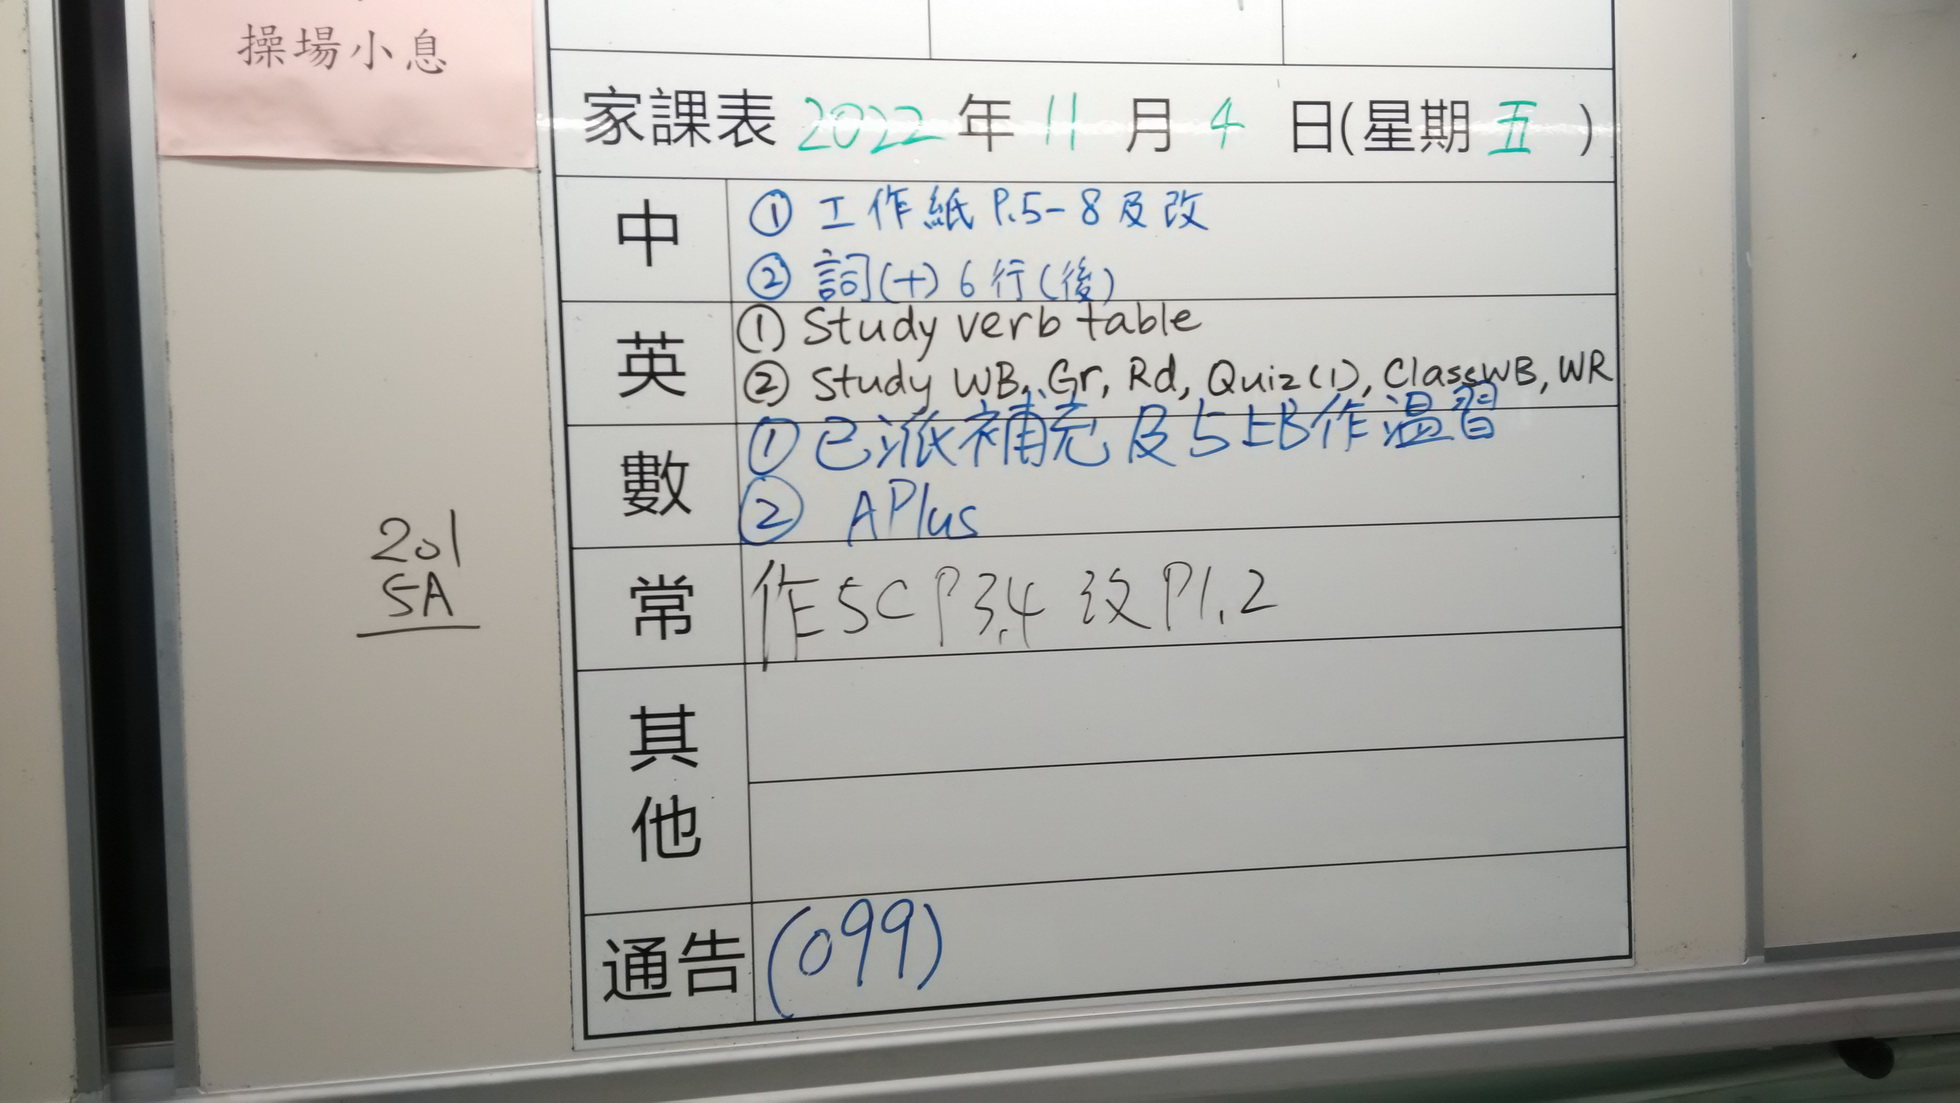 操場小息
家課表 2022 年 11 月 4 日(星期 五 )
中
① 工作紙 P.5-8 及改
② 詞(十) 6 行(後)
英
① Study verb table
② Study WB, Gr, Rd, Quiz(1), ClassWB, WR
數
① 已派補充及5上B作溫習
② APlus
常
作 5C P3,4 改 P1.2
其他
通告 (099)
201
5A